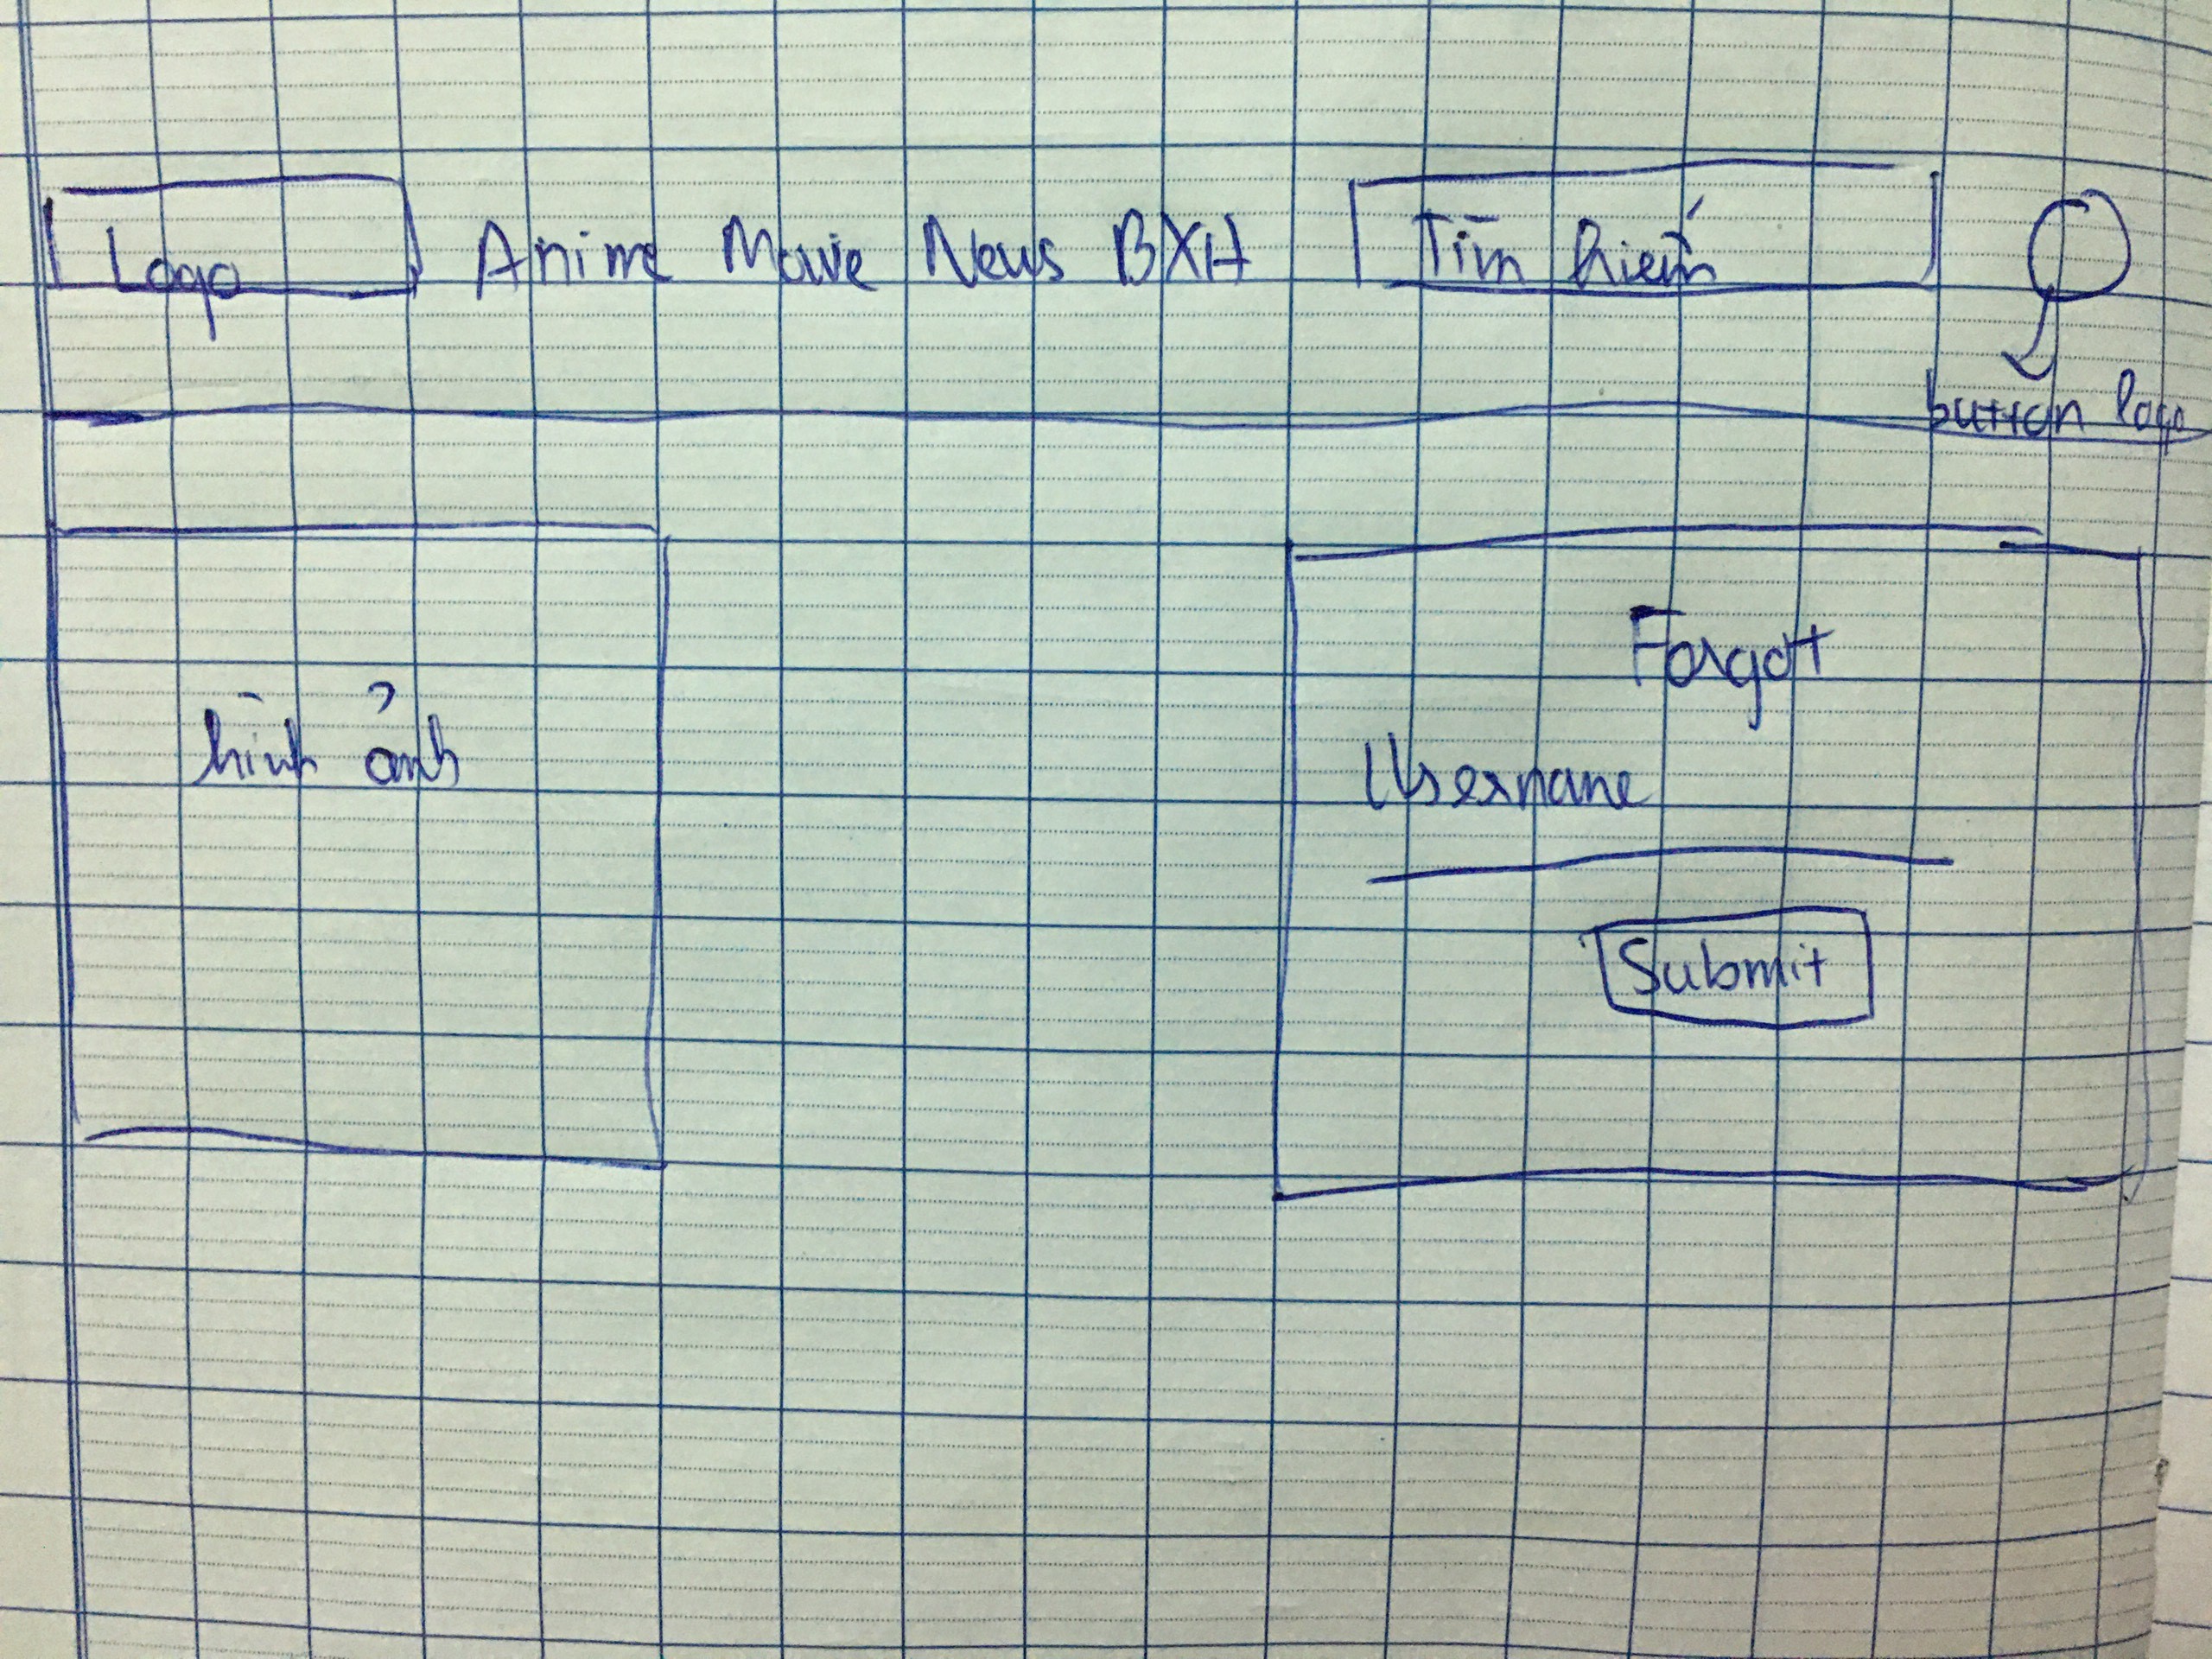 Logo Anime Movie News BXH Tìm kiếm
button logo
hình ảnh
Forgot
Username
Submit